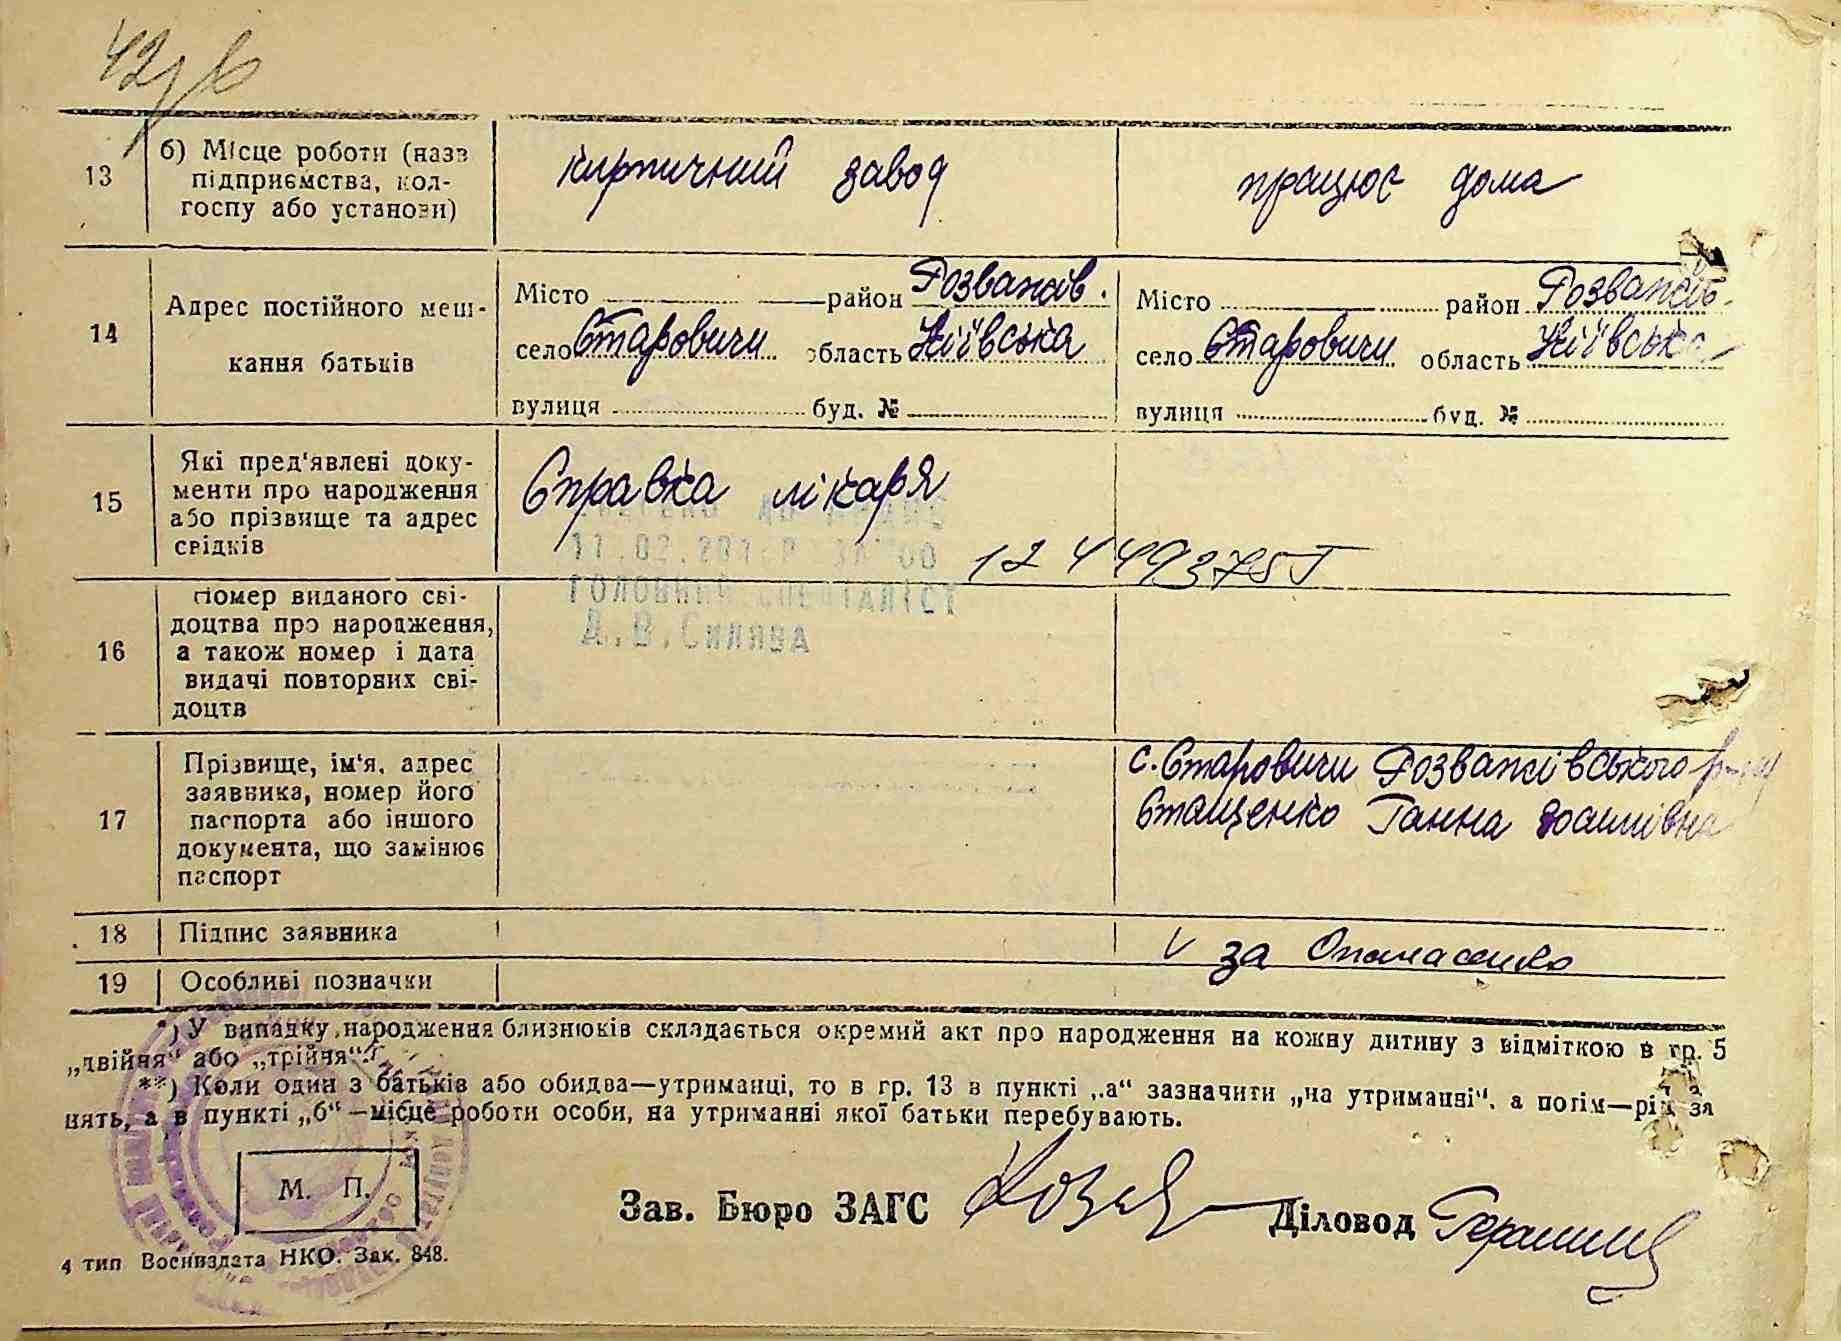 42/в
13
б) Місце роботи (назв
підприємства, кол-
госпу або установи)
кирпичний завод
працює дома
14
Адрес постійного меш-
кання батьків
Місто район Розважів.
село Старовичи область Київська
вулиця буд. №
Місто район Розважів.
село Старовичи область Київська
вулиця буд. №
15
Які пред'явлені доку-
менти про народження
або прізвище та адрес
свідків
Справка лікаря
11.02.201
ГОЛОВНИЙ СПЕЦІАЛІСТ
Д.В.Силява
12 449375
16
Номер виданого сві-
доцтва про народження,
а також номер і дата
видачі повторних сві-
доцтв
17
Прізвище, ім'я, адрес
заявника, номер його
паспорта або іншого
документа, що замінює
паспорт
с. Старовичи Розважівського р-ну
Стащенко Ганна
18
Підпис заявника
за Опанасенко
19
Особливі позначки
*) У випадку народження близнюків складається окремий акт про народження на кожну дитину з відміткою в гр. 5
„двійня“ або „трійня“.
**) Коли один з батьків або обидва—утриманці, то в гр. 13 в пункті „а“ зазначити „на утриманні“, а потім—рід за
нять, а в пункті „б“—місце роботи особи, на утриманні якої батьки перебувають.
М. П.
Зав. Бюро ЗАГС
Діловод
4 тип Воениздата НКО. Зак. 848.